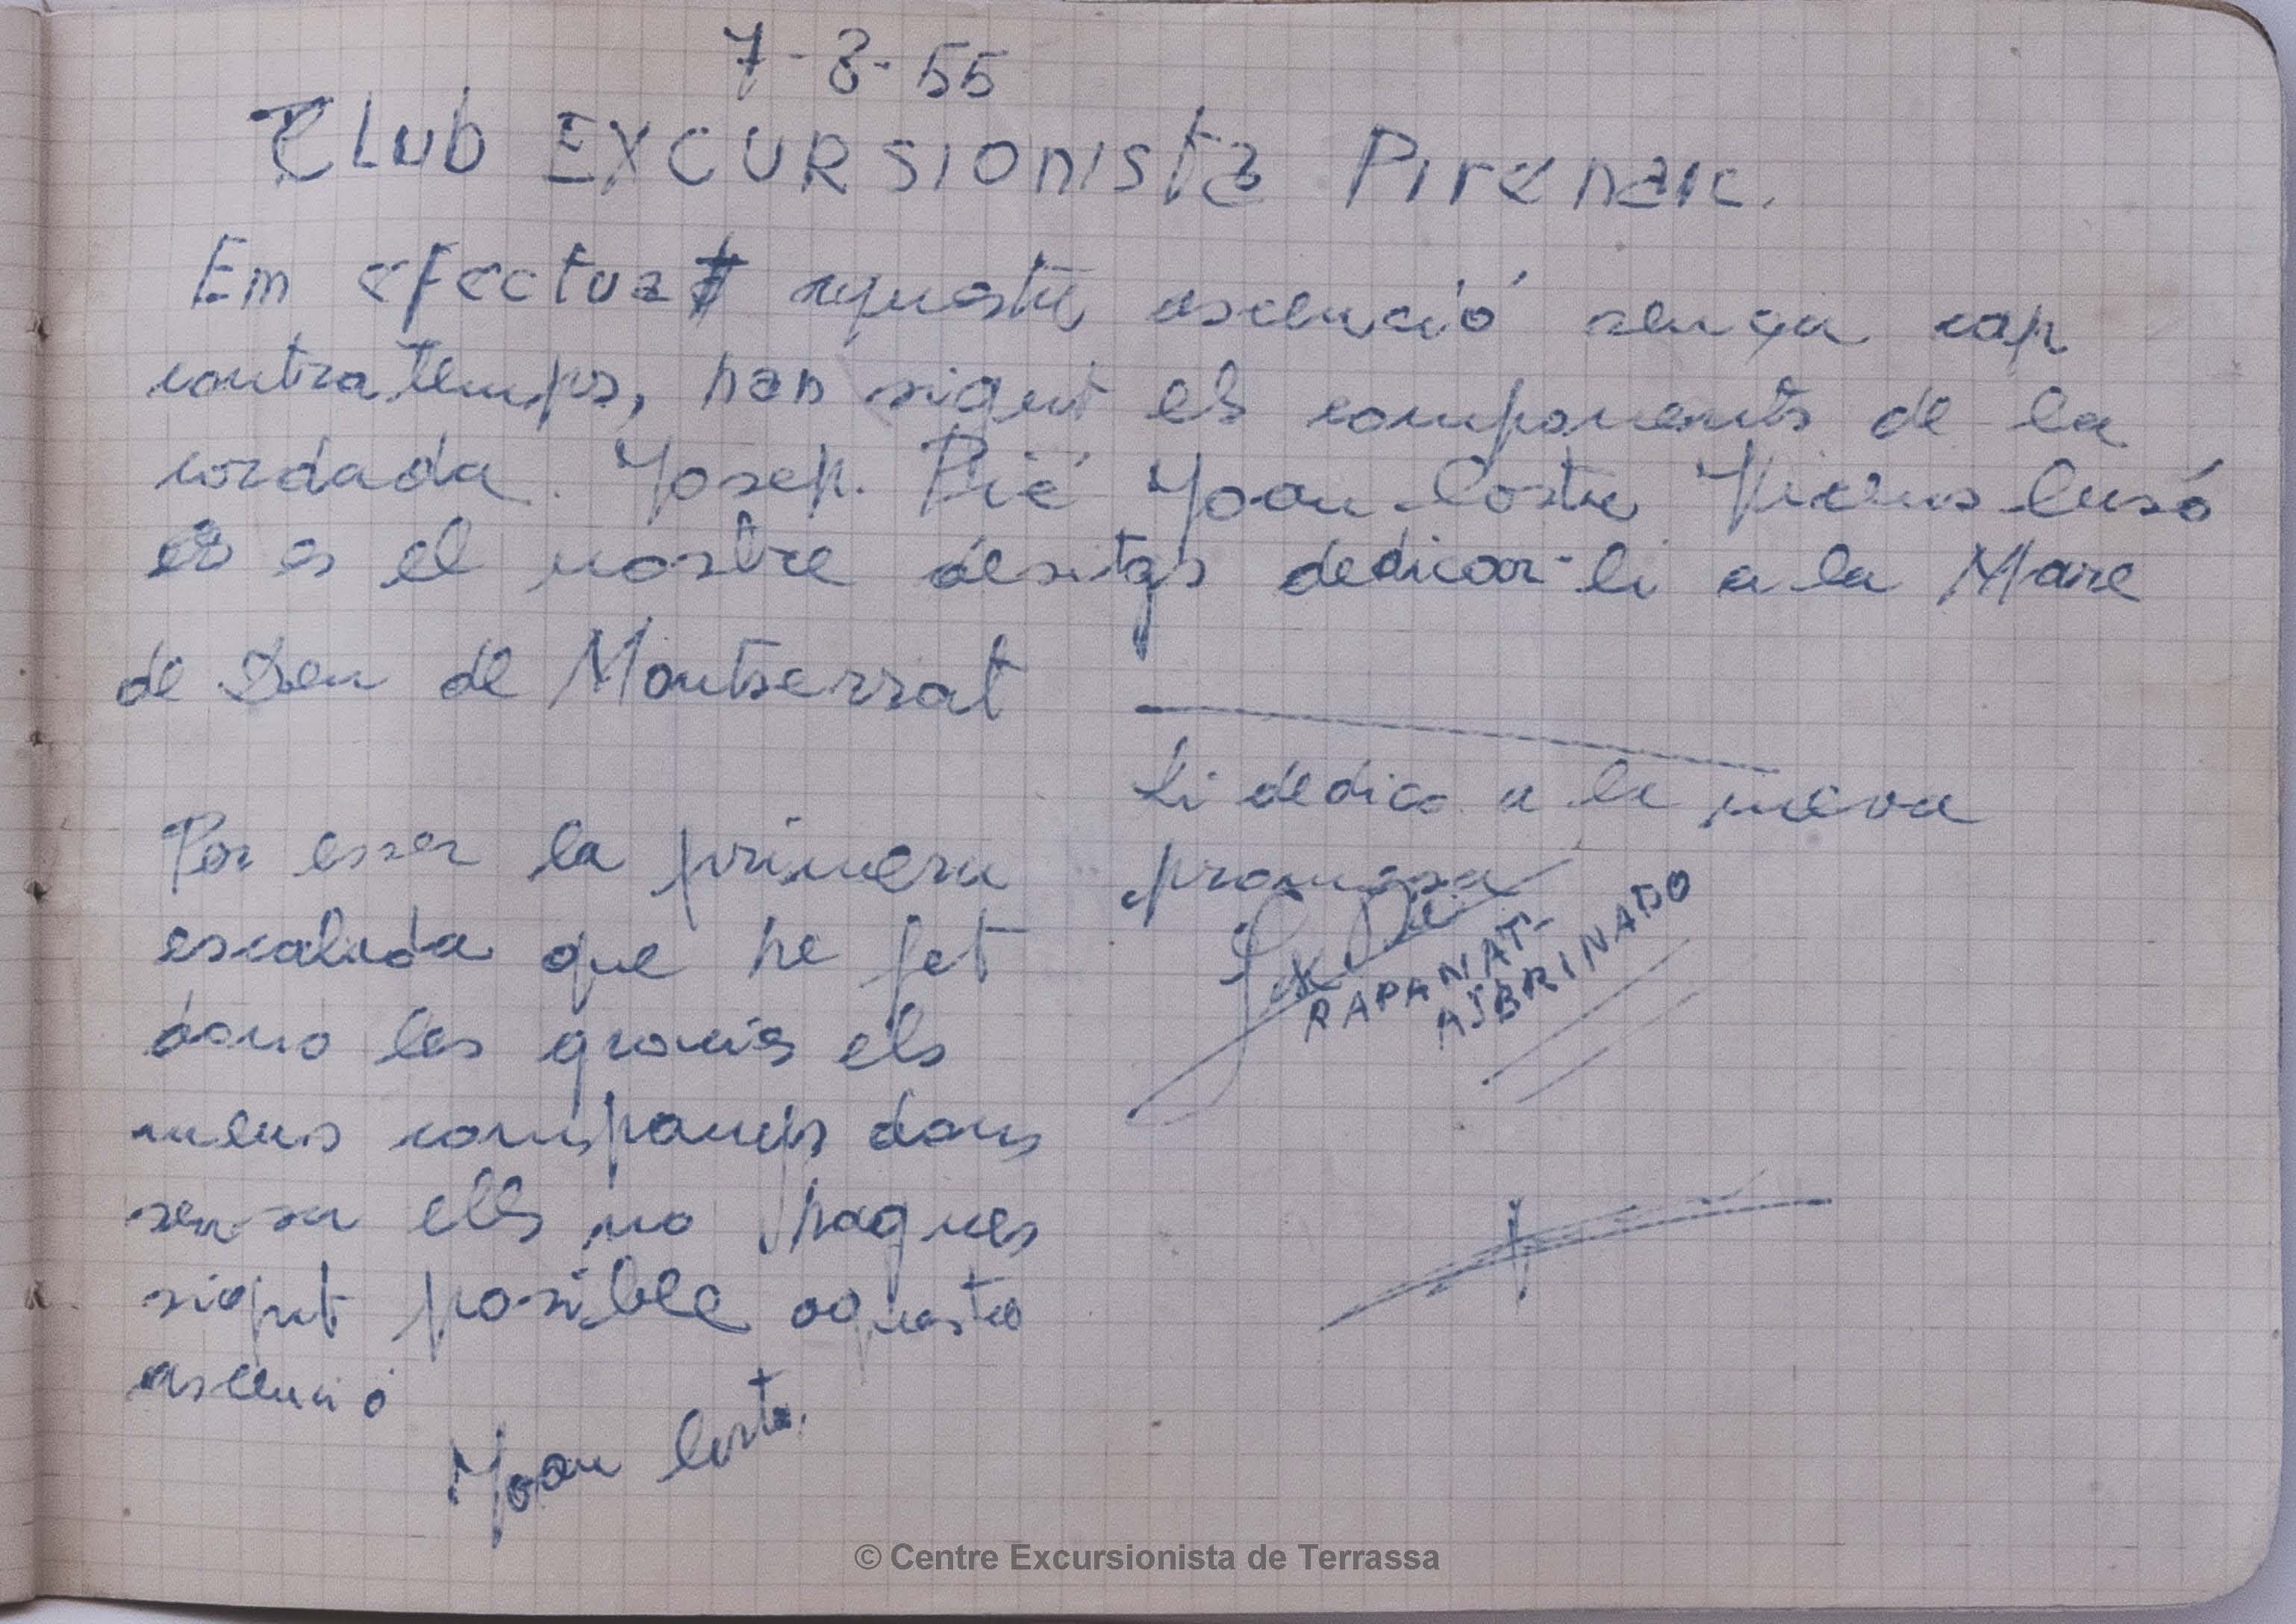 7-8-55
Club EXCURSIONista Pirenaic.
Em efectuat aquesta ascenció sença cap
contratemps, han sigut els components de la
cordada. Josep. Pié Joan Costa Vicens Cusó
es el nostre desitgs dedicar-li a la Mare
de Deu de Montserrat
Per esser la primera
escalada que he fet
dono les gracies els
meus companys dons
sensa ells no hagues
sigut posible aquesta
ascenció
Joan Costa.
Li dedico a la meva
promesa
RAPANAT-
ASBRINADO
© Centre Excursionista de Terrassa